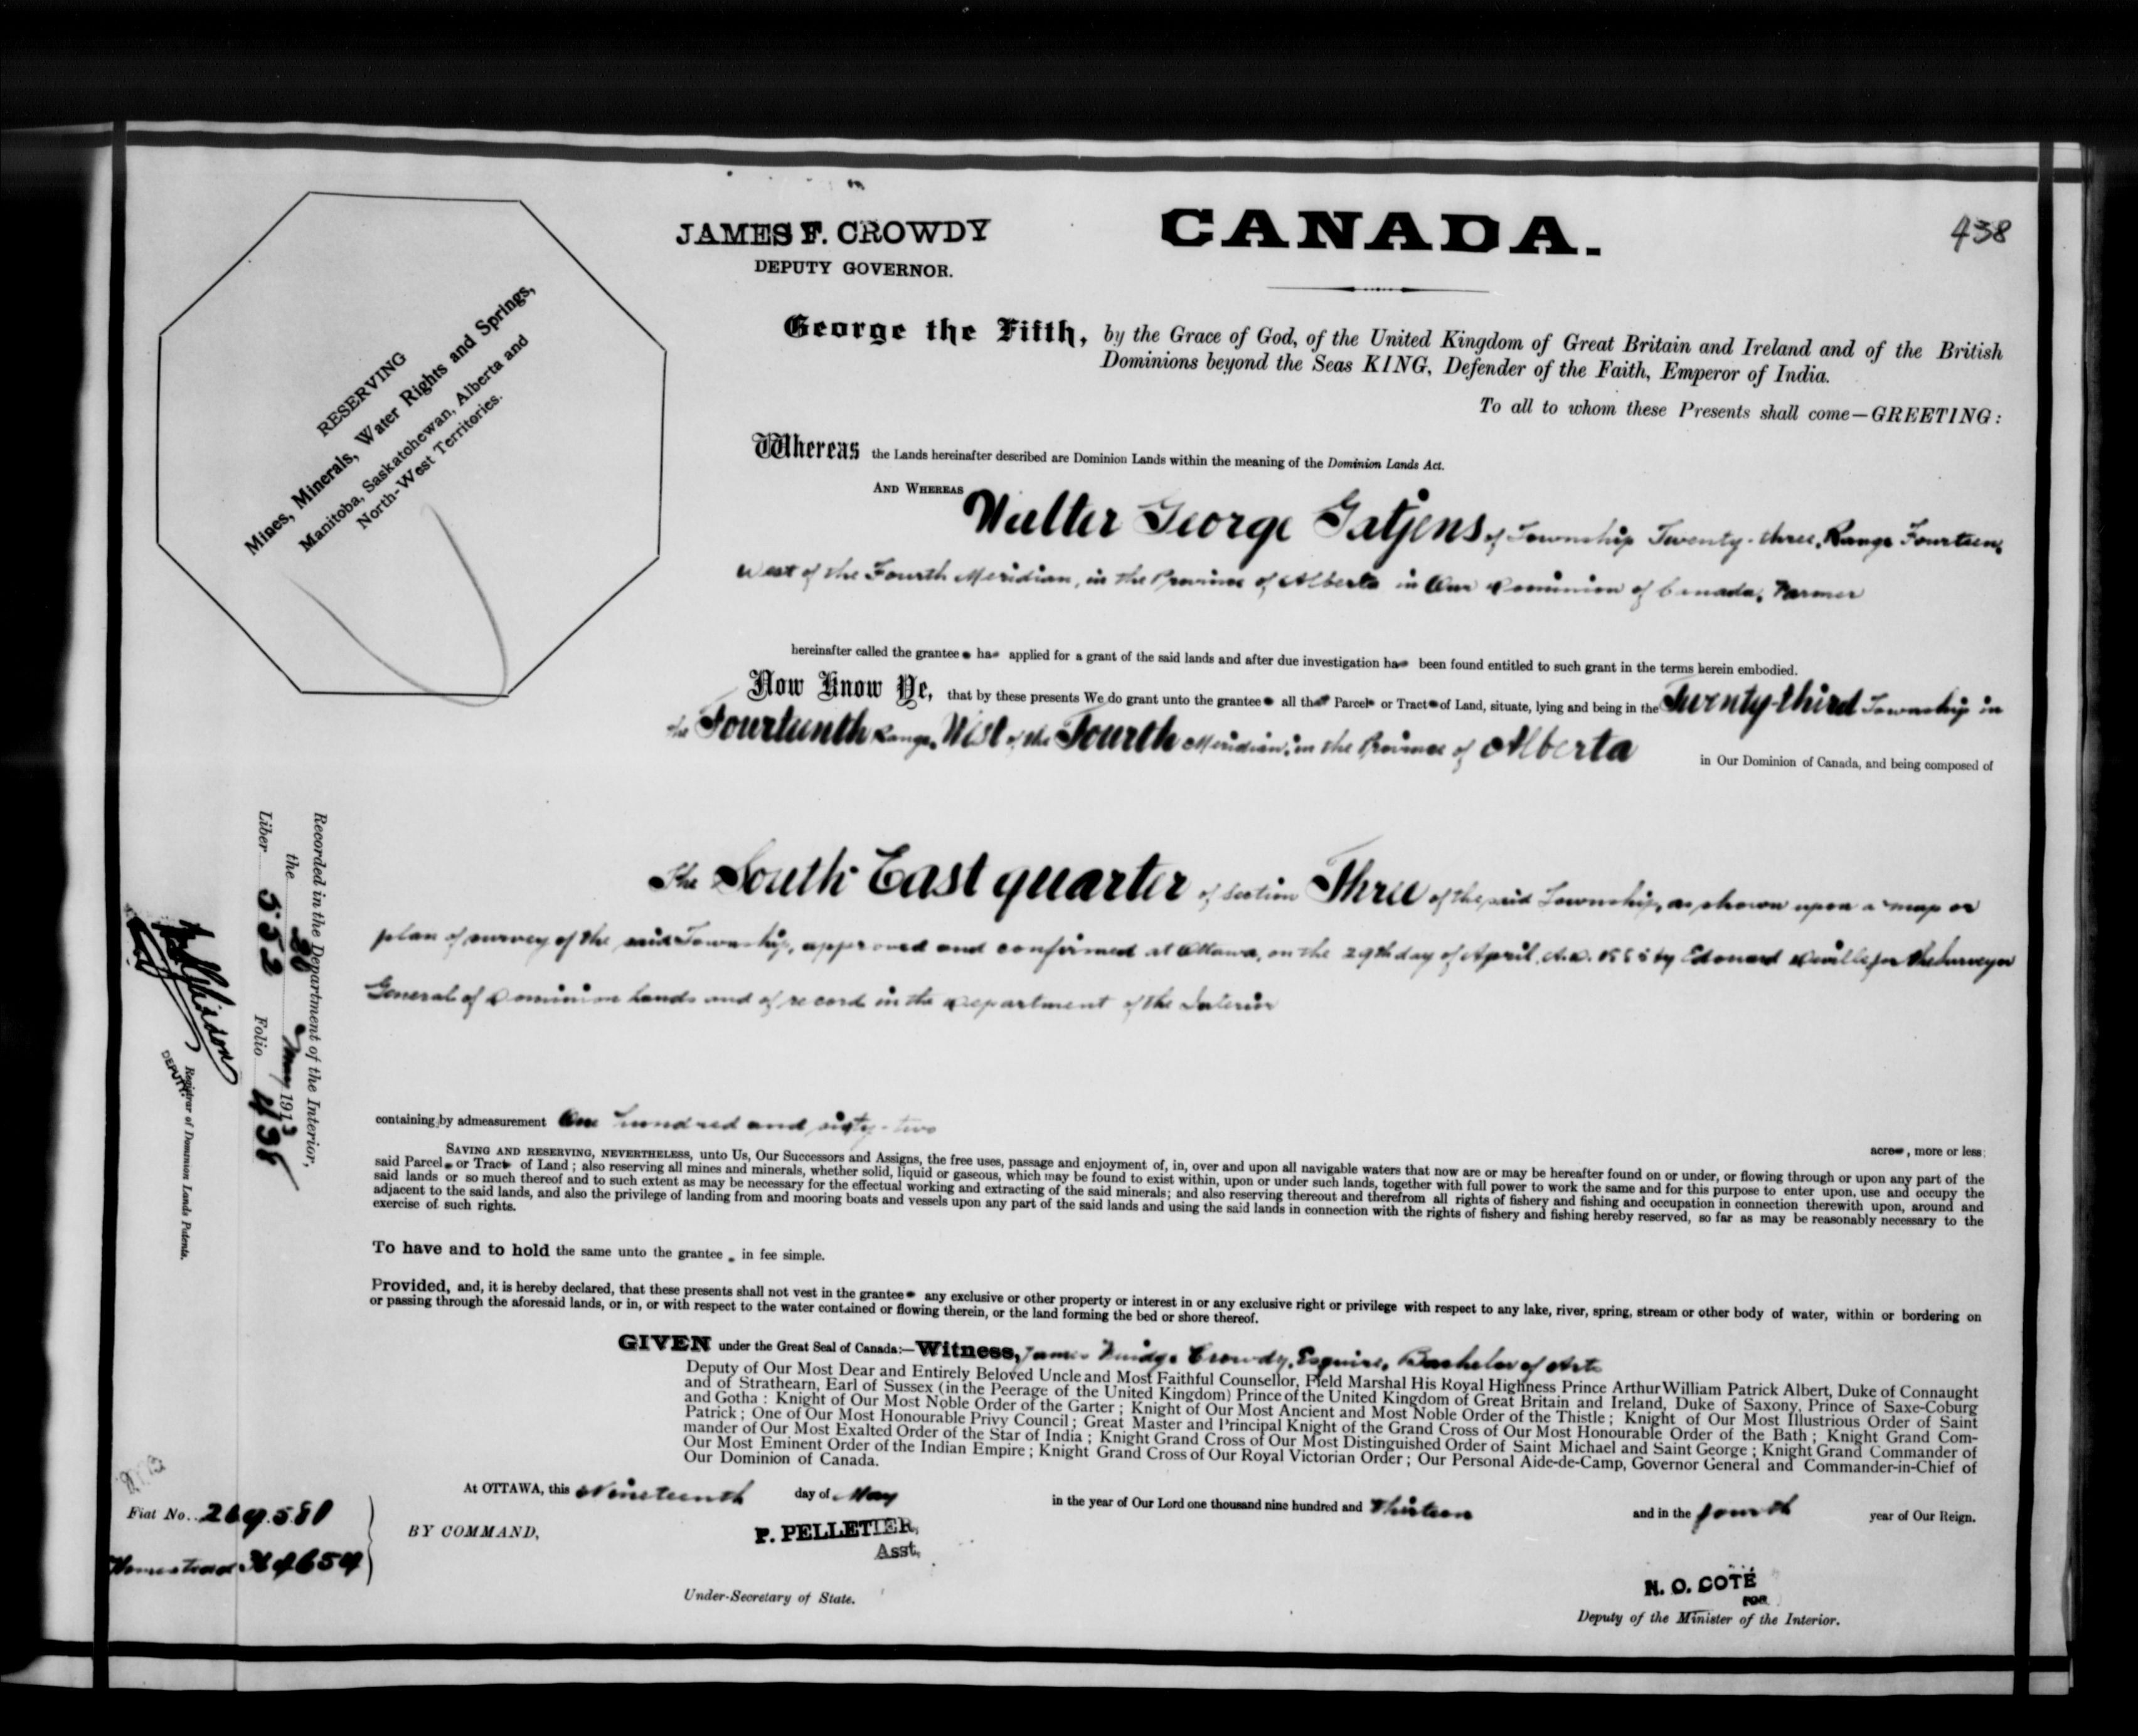 438
JAMES F. CROWDY
DEPUTY GOVERNOR.
CANADA.
RESERVING
Mines, Minerals, Water Rights and Springs,
Manitoba, Saskatchewan, Alberta and
North-West Territories.
George the Fifth, by the Grace of God, of the United Kingdom of Great Britain and Ireland and of the British
Dominions beyond the Seas KING, Defender of the Faith, Emperor of India.
To all to whom these Presents shall come—GREETING:
Whereas the Lands hereinafter described are Dominion Lands within the meaning of the Dominion Lands Act.
AND WHEREAS Walter George Gatjens of Township Twenty-three, Range Fourteen,
West of the Fourth Meridian, in the Province of Alberta in Our Dominion of Canada, Farmer
hereinafter called the grantee has applied for a grant of the said lands and after due investigation has been found entitled to such grant in the terms herein embodied.
Now Know Ye, that by these presents We do grant unto the grantee all that Parcel or Tract of Land, situate, lying and being in the Twenty-third Township in
the Fourteenth Range, West of the Fourth Meridian, in the Province of Alberta
in Our Dominion of Canada, and being composed of
The South East quarter of Section Three of the said Township, as shown upon a map or
plan of survey of the said Township, approved and confirmed at Ottawa, on the 29th day of April, A.D. by Edouard Deville for the Surveyor
General of Dominion Lands and of record in the Department of the Interior
containing by admeasurement One hundred and sixty-two
acres, more or less;
SAVING AND RESERVING, NEVERTHELESS, unto Us, Our Successors and Assigns, the free uses, passage and enjoyment of, in, over and upon all navigable waters that now are or may be hereafter found on or under, or flowing through or upon any part of the
said Parcel or Tract of Land; also reserving all mines and minerals, whether solid, liquid or gaseous, which may be found to exist within, upon or under such lands, together with full power to work the same and for this purpose to enter upon, use and occupy the
said lands or so much thereof and to such extent as may be necessary for the effectual working and extracting of the said minerals; and also reserving thereout and therefrom all rights of fishery and fishing and occupation in connection therewith upon, around and
adjacent to the said lands, and also the privilege of landing from and mooring boats and vessels upon any part of the said lands and using the said lands in connection with the rights of fishery and fishing hereby reserved, so far as may be reasonably necessary to the
exercise of such rights.
To have and to hold the same unto the grantee in fee simple.
Provided, and, it is hereby declared, that these presents shall not vest in the grantee any exclusive or other property or interest in or any exclusive right or privilege with respect to any lake, river, spring, stream or other body of water, within or bordering on
or passing through the aforesaid lands, or in, or with respect to the water contained or flowing therein, or the land forming the bed or shore thereof.
GIVEN under the Great Seal of Canada:—Witness, James Crowdy, Esquire, Bachelor of Arts
Deputy of Our Most Dear and Entirely Beloved Uncle and Most Faithful Counsellor, Field Marshal His Royal Highness Prince Arthur William Patrick Albert, Duke of Connaught
and of Strathearn, Earl of Sussex (in the Peerage of the United Kingdom) Prince of the United Kingdom of Great Britain and Ireland, Duke of Saxony, Prince of Saxe-Coburg
and Gotha: Knight of Our Most Noble Order of the Garter; Knight of Our Most Ancient and Most Noble Order of the Thistle; Knight of Our Most Illustrious Order of Saint
Patrick; One of Our Most Honourable Privy Council; Great Master and Principal Knight of the Grand Cross of Our Most Honourable Order of the Bath; Knight Grand Com-
mander of Our Most Exalted Order of the Star of India; Knight Grand Cross of Our Most Distinguished Order of Saint Michael and Saint George; Knight Grand Commander of
Our Most Eminent Order of the Indian Empire; Knight Grand Cross of Our Royal Victorian Order; Our Personal Aide-de-Camp, Governor General and Commander-in-Chief of
Our Dominion of Canada.
At OTTAWA, this Nineteenth day of May in the year of Our Lord one thousand nine hundred and Thirteen and in the fourth year of Our Reign.
BY COMMAND,
P. PELLETIER,
Asst.
Under-Secretary of State.
N. O. COTÉ
FOR
Deputy of the Minister of the Interior.
Fiat No. 269.581
Homestead
Recorded in the Department of the Interior,
the 20 May 1913
Liber 552 Folio 438
Registrar of Dominion Lands Patents.
DEPUTY